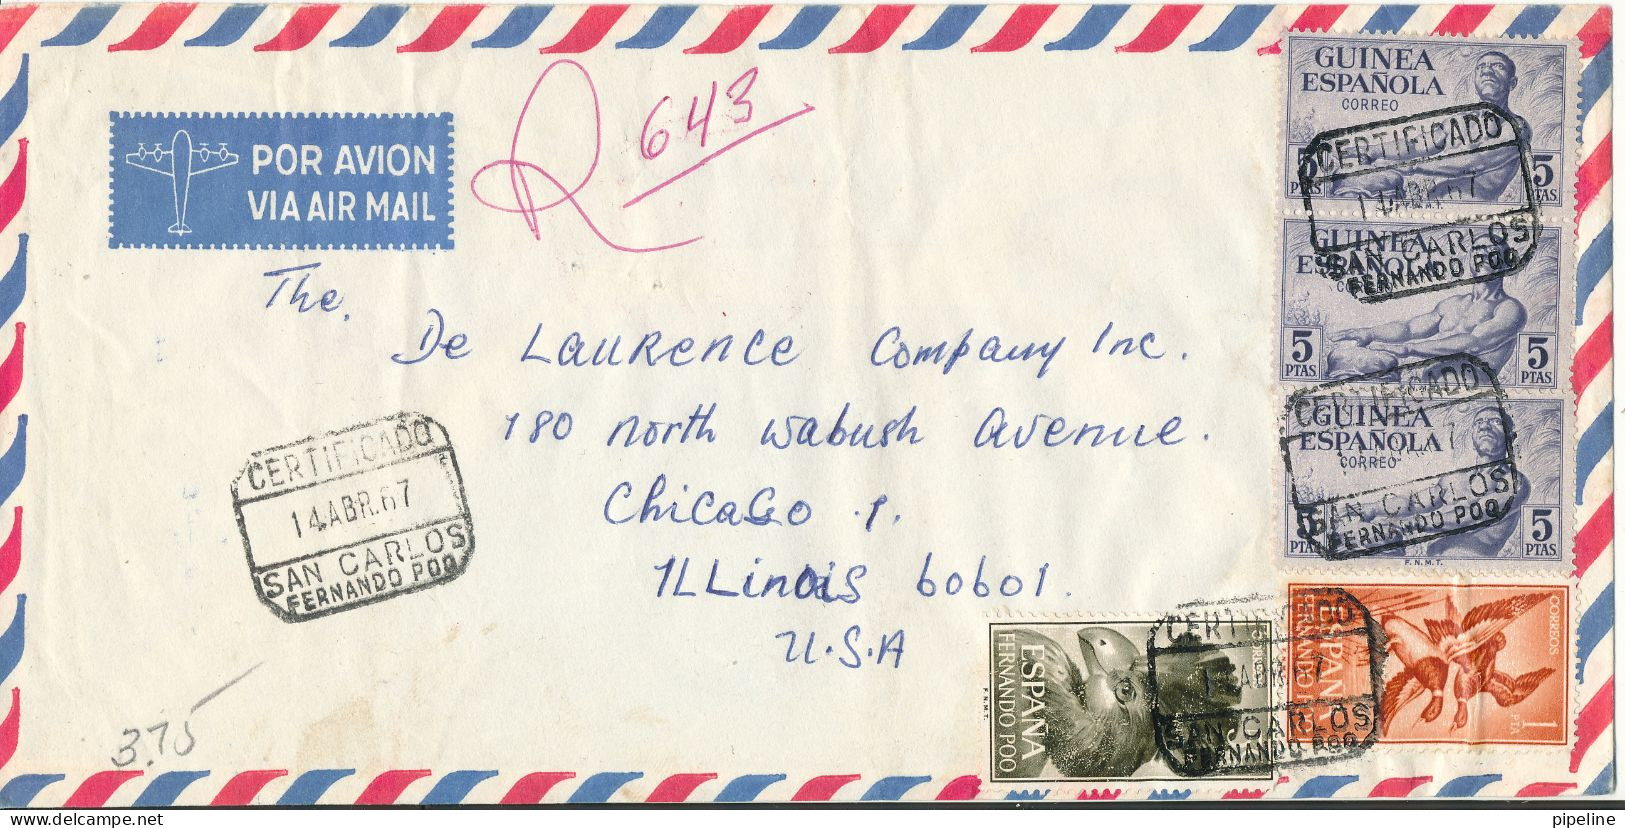 POR AVION
VIA AIR MAIL
R 643
The.
De Laurence Company Inc.
180 north wabush avenue.
Chicago .1.
ILLinois 60601.
U.S.A
3.75
CERTIFICADO
14 ABR. 67
SAN CARLOS
FERNANDO POO
GUINEA
ESPAÑOLA
CORREO
5 5
PTAS PTAS
F.N.M.T.
CERTIFICADO
14 ABR. 67
SAN CARLOS
FERNANDO POO
GUINEA
ESPAÑOLA
5 5
PTAS PTAS
CERTIFICADO
GUINEA
ESPAÑOLA
CORREO
SAN CARLOS
FERNANDO POO
5 5
PTAS PTAS
F.N.M.T.
ESPAÑA
FERNANDO POO
F.N.M.T.
CERTIFICADO
ABR. 67
SAN CARLOS
FERNANDO POO
CORREOS
ESPAÑA
FERNANDO POO
1
PTA
pipeline